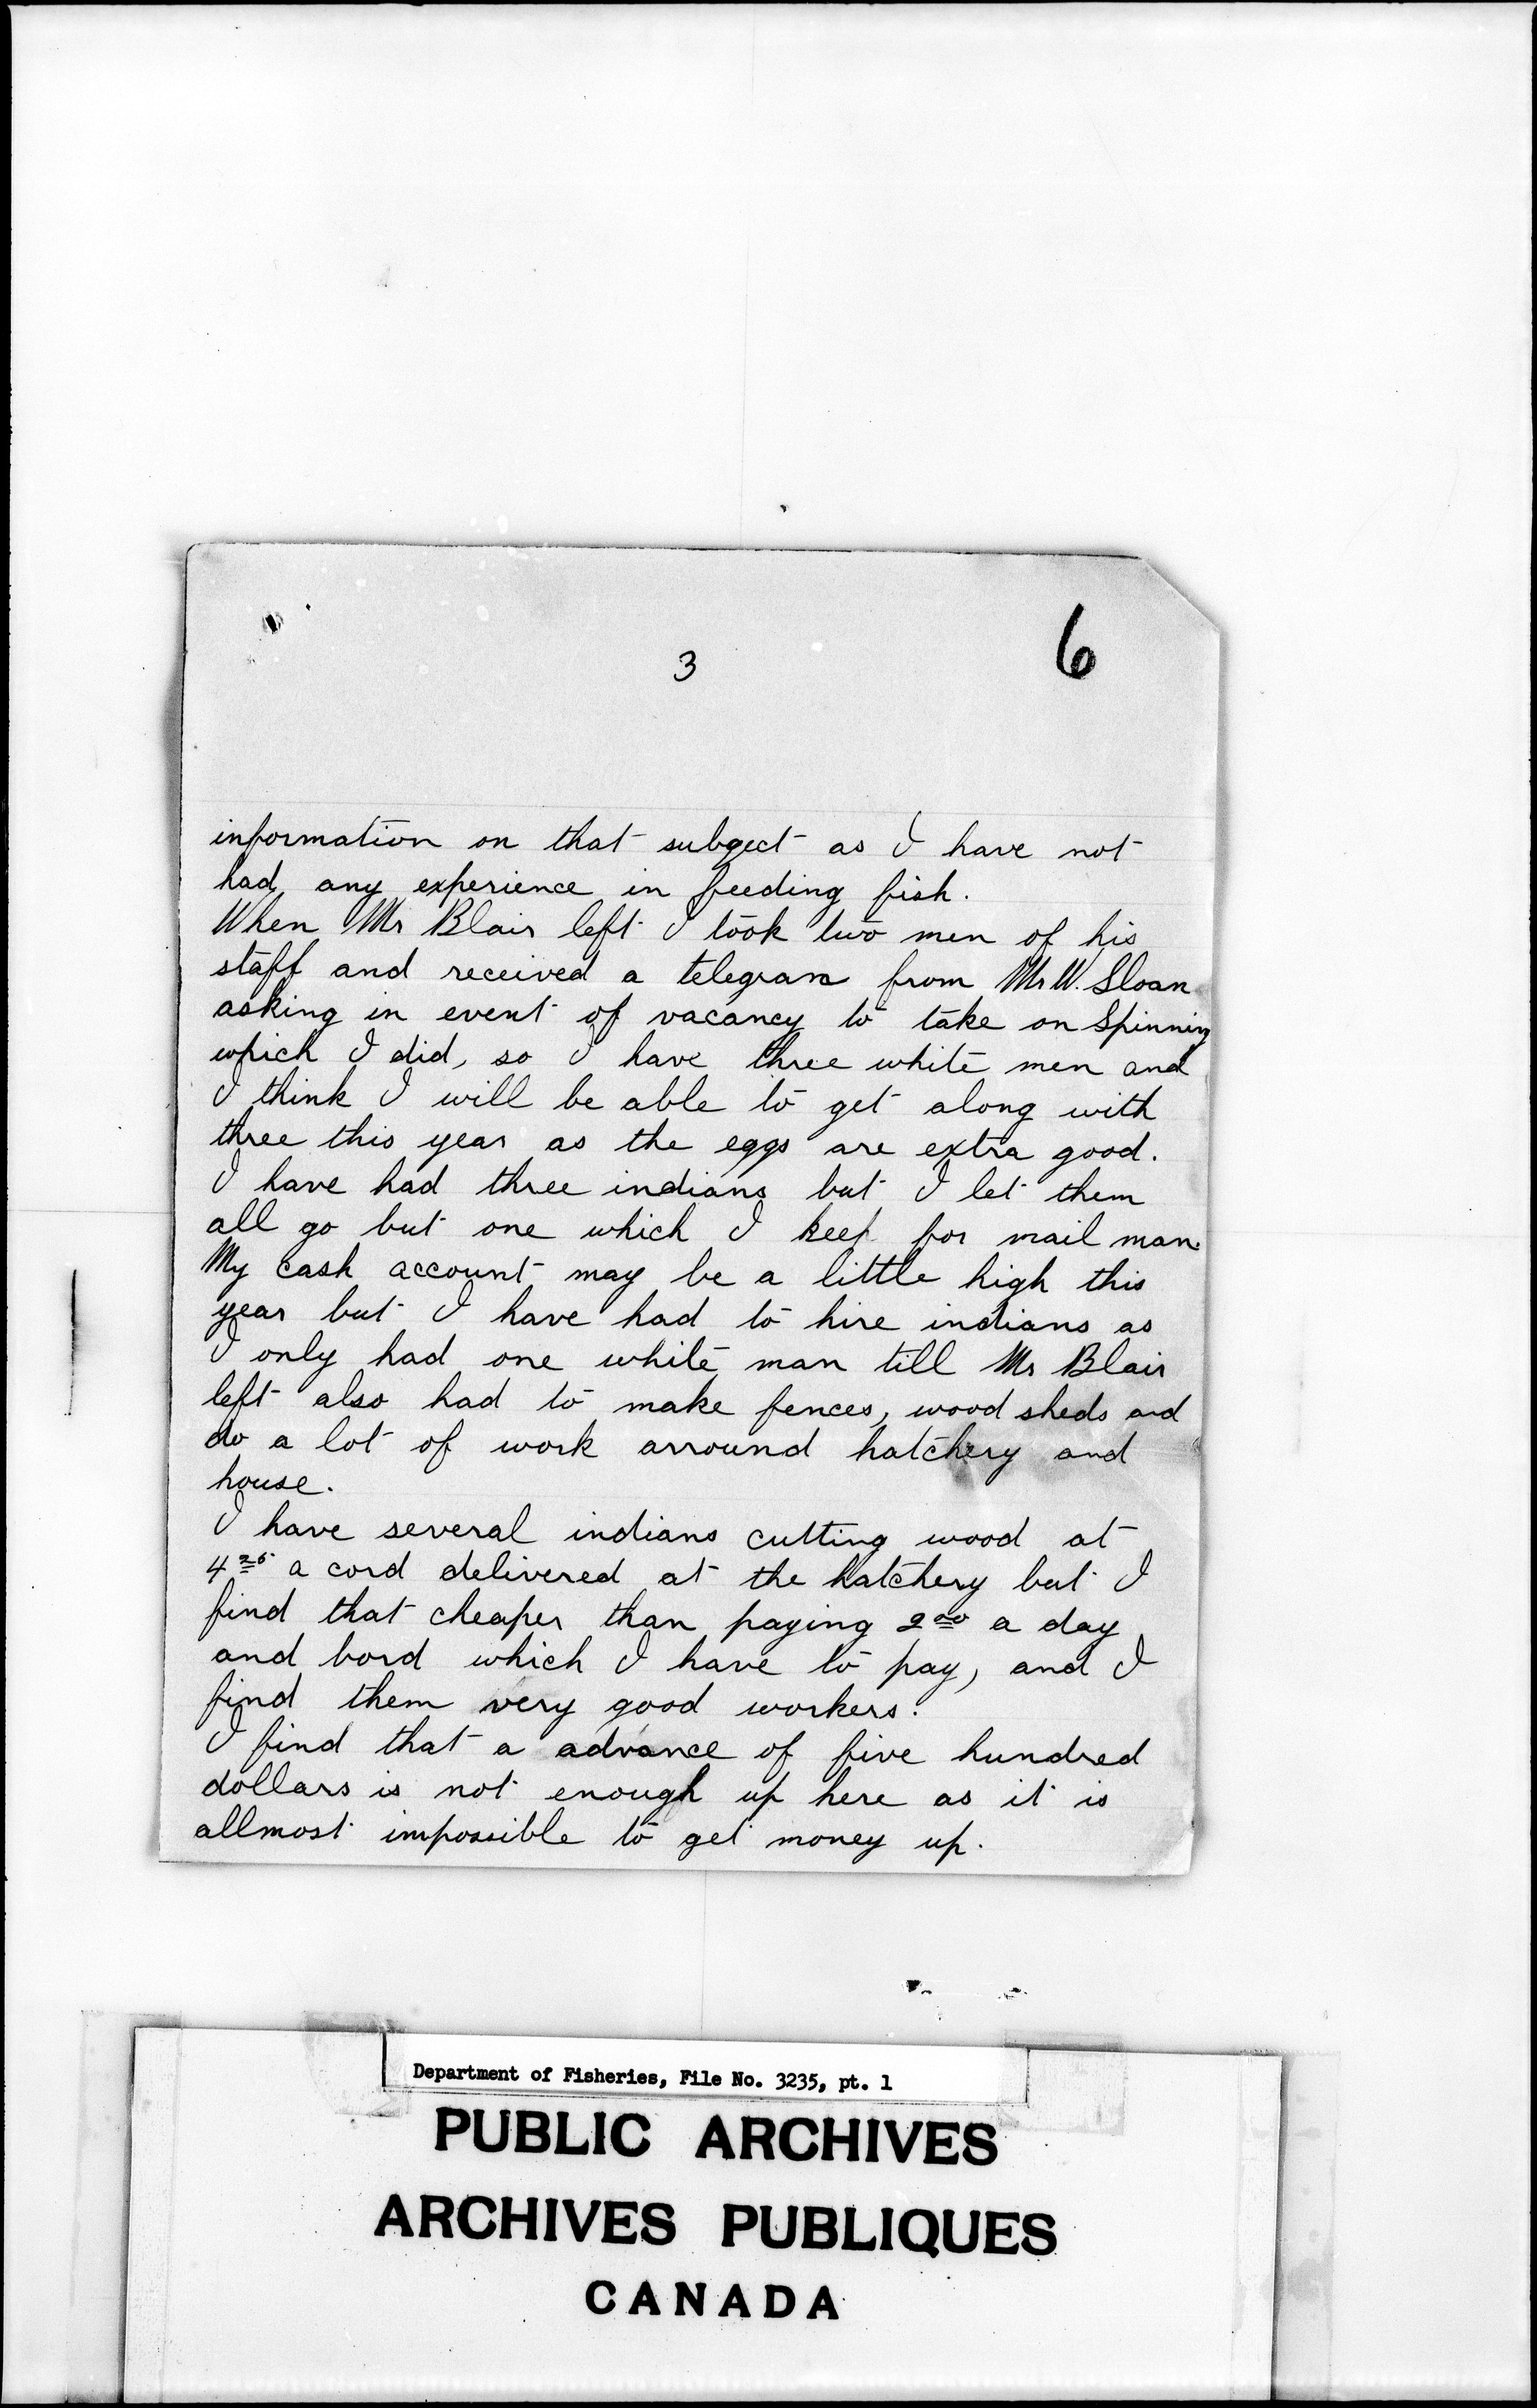 3
6
information on that subgect as I have not
had any experience in feeding fish.
When Mr Blair left I took two men of his
staff and received a telegram from Mr W. Sloan
asking in event of vacancy to take on Spinning
which I did, so I have three white men and
I think I will be able to get along with
three this year as the eggs are extra good.
I have had three indians but I let them
all go but one which I keep for mail man.
My cash account may be a little high this
year but I have had to hire indians as
I only had one white man till Mr Blair
left also had to make fences, wood sheds and
do a lot of work arround hatchery and
house.
I have several indians cutting wood at
4 25 a cord delivered at the hatchery but I
find that cheaper than paying 2 00 a day
and bord which I have to pay, and I
find them very good workers.
I find that a advance of five hundred
dollars is not enough up here as it is
allmost impossible to get money up.
Department of Fisheries, File No. 3235, pt. 1
PUBLIC ARCHIVES
ARCHIVES PUBLIQUES
CANADA